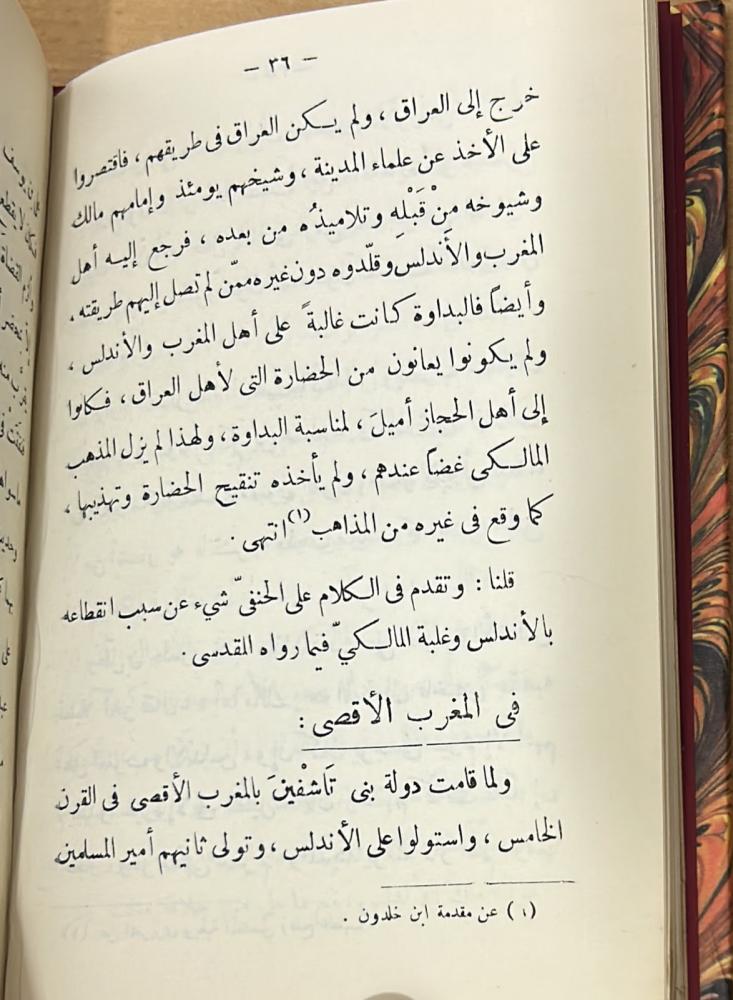 — ٣٦ —
خرج إلى العراق ، ولم يكن العراق فى طريقهم ، فاقتصروا
على الأخذ عن علماء المدينة ، وشيخهم يومئذ وإمامهم مالك
وشيوخه مِنْ قَبْلِهِ وتلاميذُه من بعده ، فرجع إليه أهل
المغرب والأندلس وقلّدوه دون غيره ممّن لم تصل إليهم طريقته .
وأيضاً فالبداوة كانت غالبةً على أهل المغرب والأندلس ،
ولم يكونوا يعانون من الحضارة التى لأهل العراق ، فكانوا
إلى أهل الحجاز أميلَ ، لمناسبة البداوة ، ولهذا لم يزل المذهب
المالكى غضاً عندهم ، ولم يأخذه تنقيح الحضارة وتهذيبها ،
كما وقع فى غيره من المذاهب (١) انتهى .
قلنا : وتقدم فى الكلام على الحنفىّ شيء عن سبب انقطاعه
بالأندلس وغلبة المالكىّ فيما رواه المقدسى .
فى المغرب الأقصى :
ولما قامت دولة بنى تَاشْفِينَ بالمغرب الأقصى فى القرن
الخامس ، واستولوا على الأندلس ، وتولى ثانيهم أمير المسلمين
(١) عن مقدمة ابن خلدون .